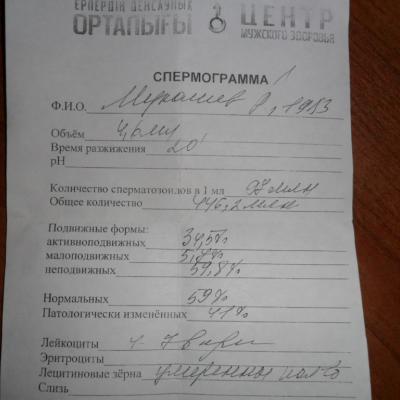 ЕРЛЕРДІҢ ДЕНСАУЛЫҚ ОРТАЛЫҒЫ
ЦЕНТР МУЖСКОГО ЗДОРОВЬЯ
СПЕРМОГРАММА
Ф.И.О. 1983
Объём 4,6 мл
Время разжижения 20'
рН
Количество сперматозоидов в 1 мл 97 млн
Общее количество 446,2 млн
Подвижные формы:
активноподвижных 34,5%
малоподвижных 5,7%
неподвижных 59,8%
Нормальных 59%
Патологически изменённых 41%
Лейкоциты
Эритроциты
Лецитиновые зёрна умеренное кол-во
Слизь